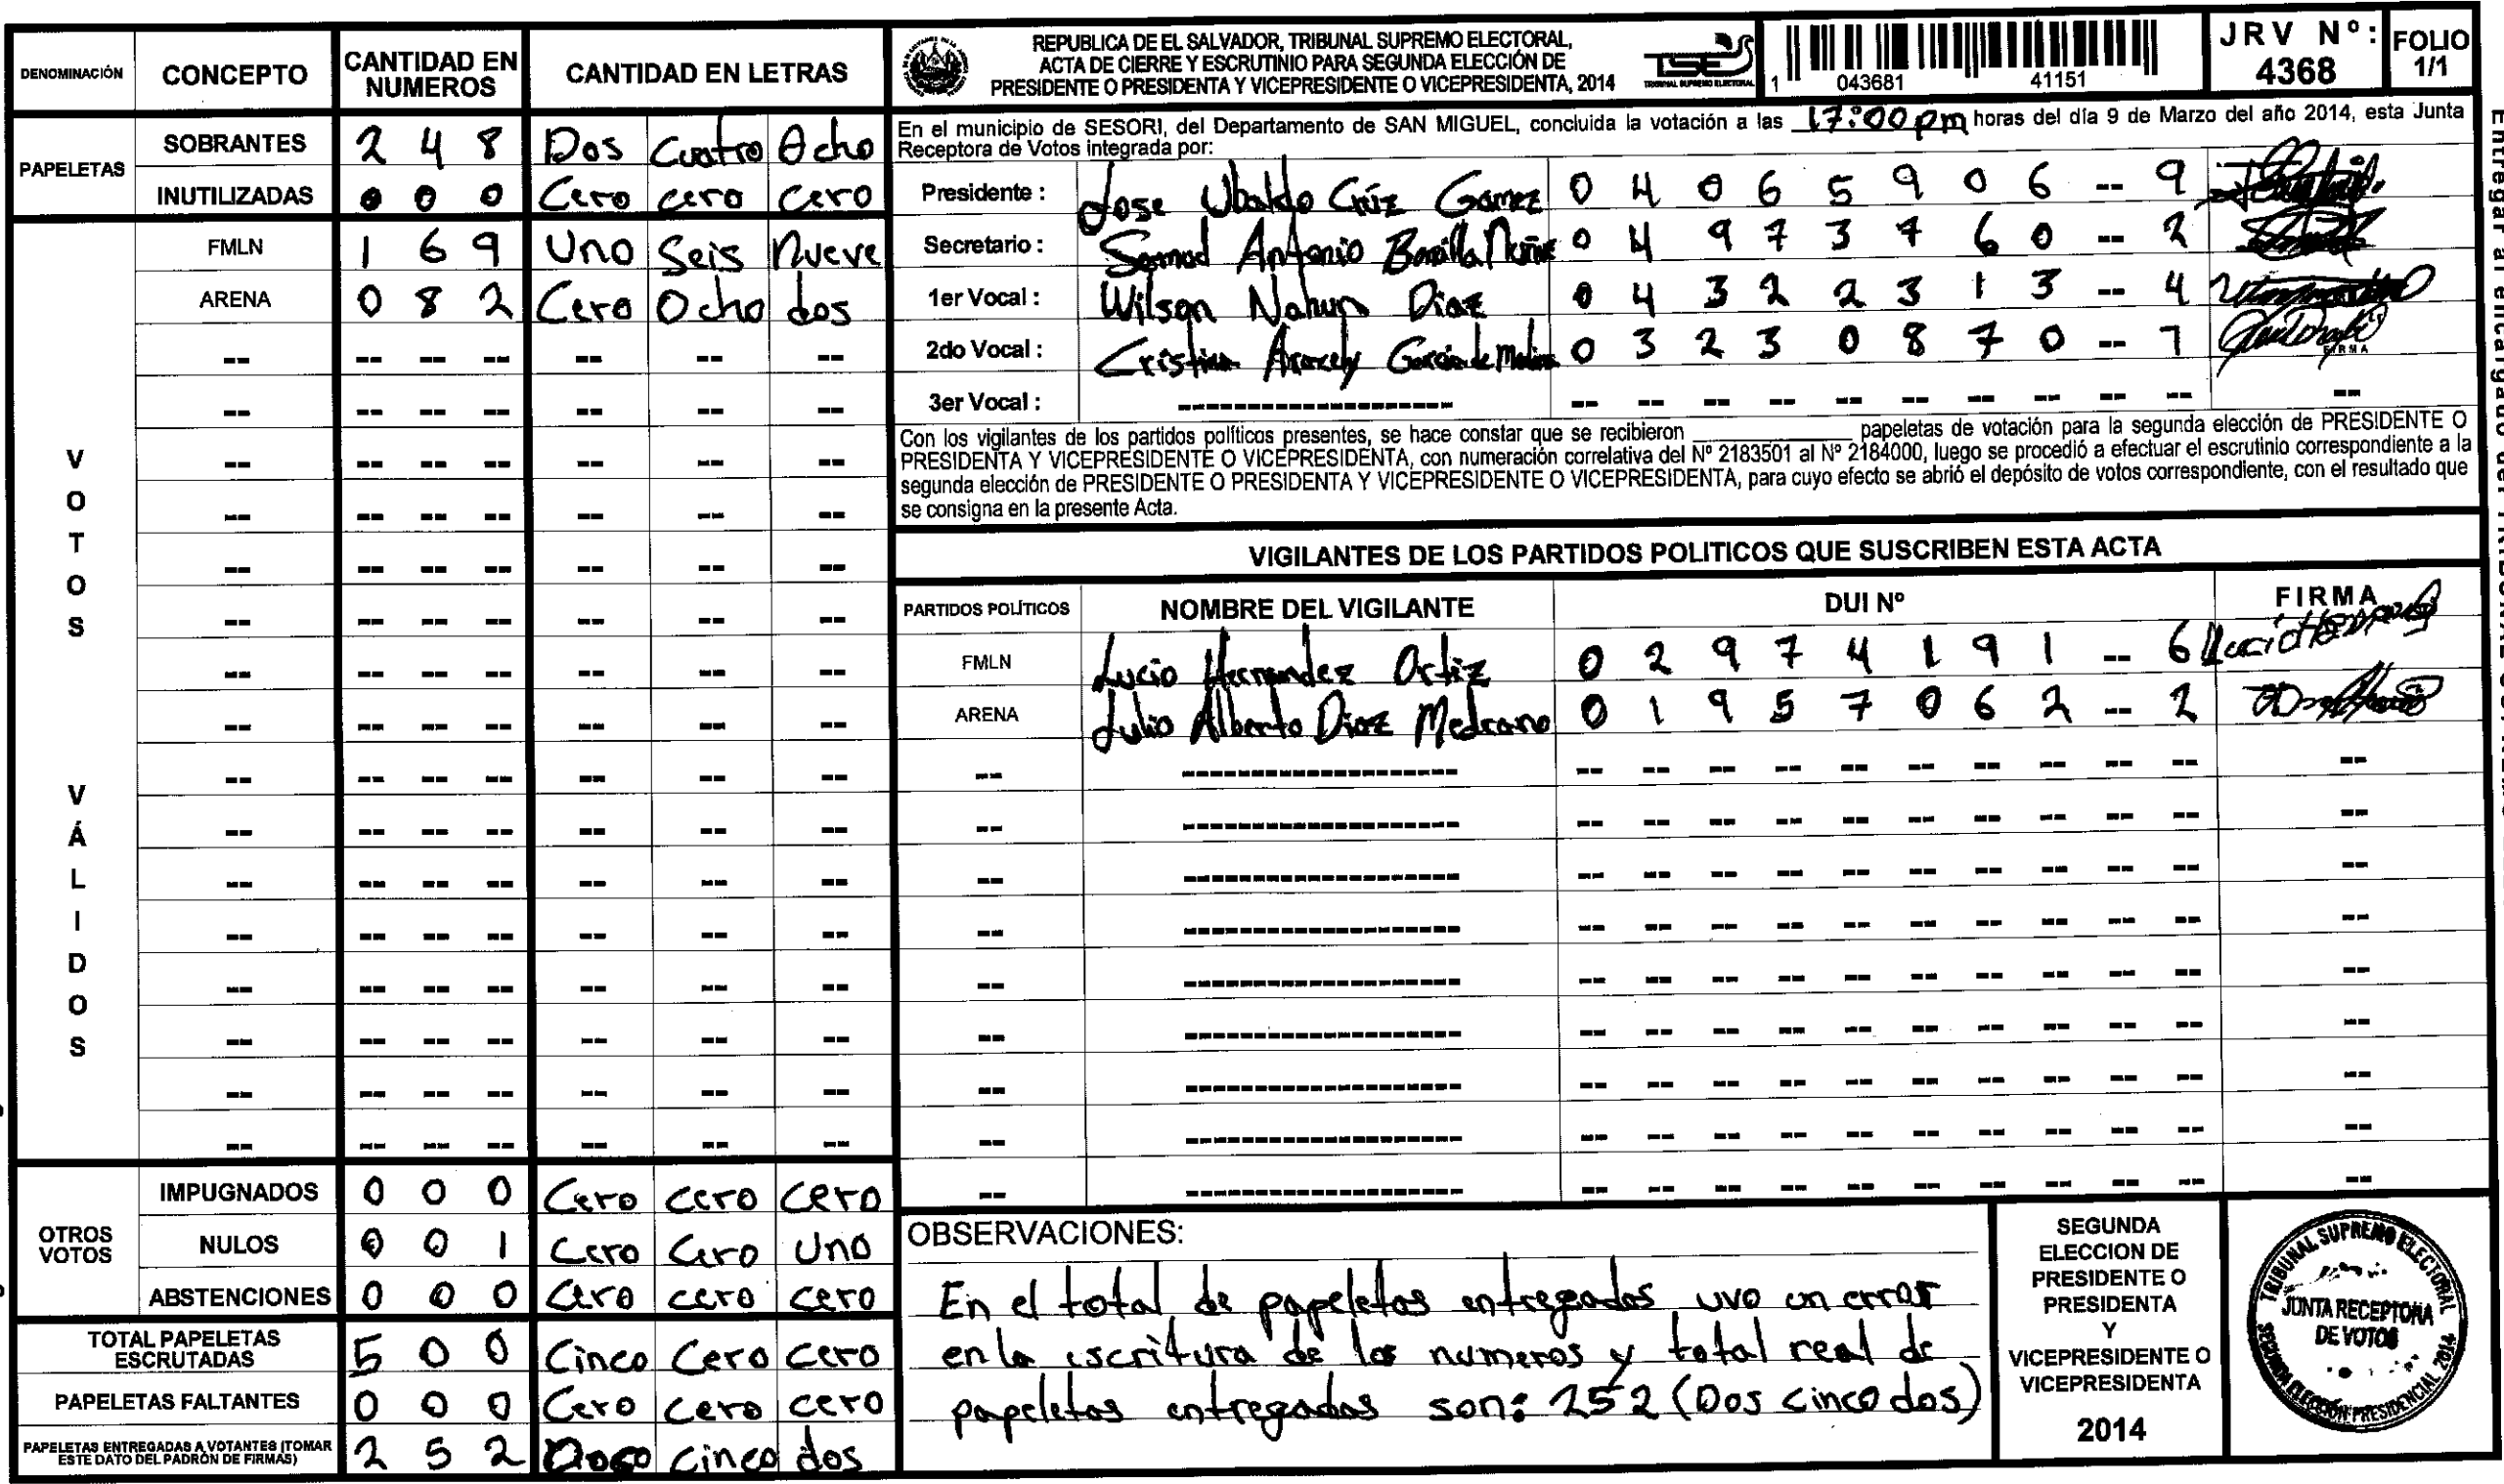 DENOMINACIÓN CONCEPTO CANTIDAD EN NUMEROS CANTIDAD EN LETRAS
PAPELETAS
SOBRANTES 2 4 8 Dos Cuatro Ocho
INUTILIZADAS 0 0 0 Cero cero cero
VOTOS VÁLIDOS
FMLN 1 6 9 Uno Seis Nueve
ARENA 0 8 2 Cero Ocho dos
OTROS VOTOS
IMPUGNADOS 0 0 0 Cero cero cero
NULOS 0 0 1 Cero Cero Uno
ABSTENCIONES 0 0 0 Cero cero cero
TOTAL PAPELETAS ESCRUTADAS 5 0 0 Cinco Cero cero
PAPELETAS FALTANTES 0 0 0 Cero cero cero
PAPELETAS ENTREGADAS A VOTANTES (TOMAR ESTE DATO DEL PADRÓN DE FIRMAS) 2 5 2 cinco dos
REPUBLICA DE EL SALVADOR, TRIBUNAL SUPREMO ELECTORAL,
ACTA DE CIERRE Y ESCRUTINIO PARA SEGUNDA ELECCIÓN DE
PRESIDENTE O PRESIDENTA Y VICEPRESIDENTE O VICEPRESIDENTA, 2014
TSE
TRIBUNAL SUPREMO ELECTORAL
1 043681 41151
JRV Nº: 4368
FOLIO 1/1
En el municipio de SESORI, del Departamento de SAN MIGUEL, concluida la votación a las 17:00 pm horas del día 9 de Marzo del año 2014, esta Junta
Receptora de Votos integrada por:
Presidente : Jose Ubaldo Cruz Gamez 0 4 0 6 5 9 0 6 -- 9
Secretario : Antonio Bonilla 0 4 9 7 3 7 6 0 -- 2
1er Vocal : Wilson Nahun Diaz 0 4 3 2 2 3 1 3 -- 4
2do Vocal : Cristina Aracely Garcia de Molina 0 3 2 3 0 8 7 0 -- 7
FIRMA
3er Vocal :
Con los vigilantes de los partidos políticos presentes, se hace constar que se recibieron ______ papeletas de votación para la segunda elección de PRESIDENTE O
PRESIDENTA Y VICEPRESIDENTE O VICEPRESIDENTA, con numeración correlativa del Nº 2183501 al Nº 2184000, luego se procedió a efectuar el escrutinio correspondiente a la
segunda elección de PRESIDENTE O PRESIDENTA Y VICEPRESIDENTE O VICEPRESIDENTA, para cuyo efecto se abrió el depósito de votos correspondiente, con el resultado que
se consigna en la presente Acta.
VIGILANTES DE LOS PARTIDOS POLITICOS QUE SUSCRIBEN ESTA ACTA
PARTIDOS POLÍTICOS NOMBRE DEL VIGILANTE DUI Nº FIRMA
FMLN Lucio Hernandez Ortiz 0 2 9 7 4 1 9 1 -- 6
ARENA Julio Alberto Diaz Medrano 0 1 9 5 7 0 6 2 -- 2
OBSERVACIONES:
En el total de papeletas entregadas uvo un error
en la escritura de los numeros y total real de
papeletas entregadas son: 252 (Dos cinco dos)
SEGUNDA
ELECCION DE
PRESIDENTE O
PRESIDENTA
Y
VICEPRESIDENTE O
VICEPRESIDENTA
2014
TRIBUNAL SUPREMO ELECTORAL
JUNTA RECEPTORA
DE VOTOS
SEGUNDA ELECCIÓN PRESIDENCIAL 2014
Entregar al encargado del